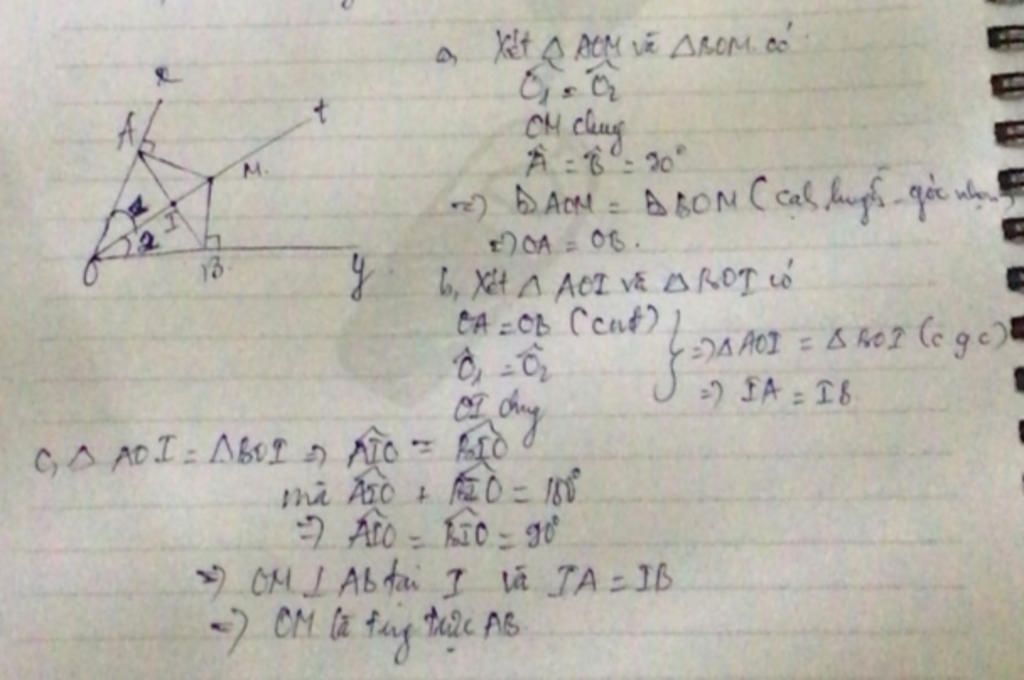 x
t
A
M.
1
I
2
O
B
y
a, Xét △ AOM và △BOM có
Ô₁ = Ô₂
OM chung
Â = B̂ = 90°
=> △AOM = △BOM (cạnh huyền - góc nhọn
=> OA = OB.
b, Xét △ AOI và △ BOI có
OA = OB (cmt)
Ô₁ = Ô₂
OI chung
=> △AOI = △BOI (c g c)
=> IA = IB
c, △ AOI = △BOI => AIO = BIO
mà AIO + BIO = 180°
=> AIO = BIO = 90°
=> OM ⊥ AB tại I và IA = IB
=> OM là trung trực AB